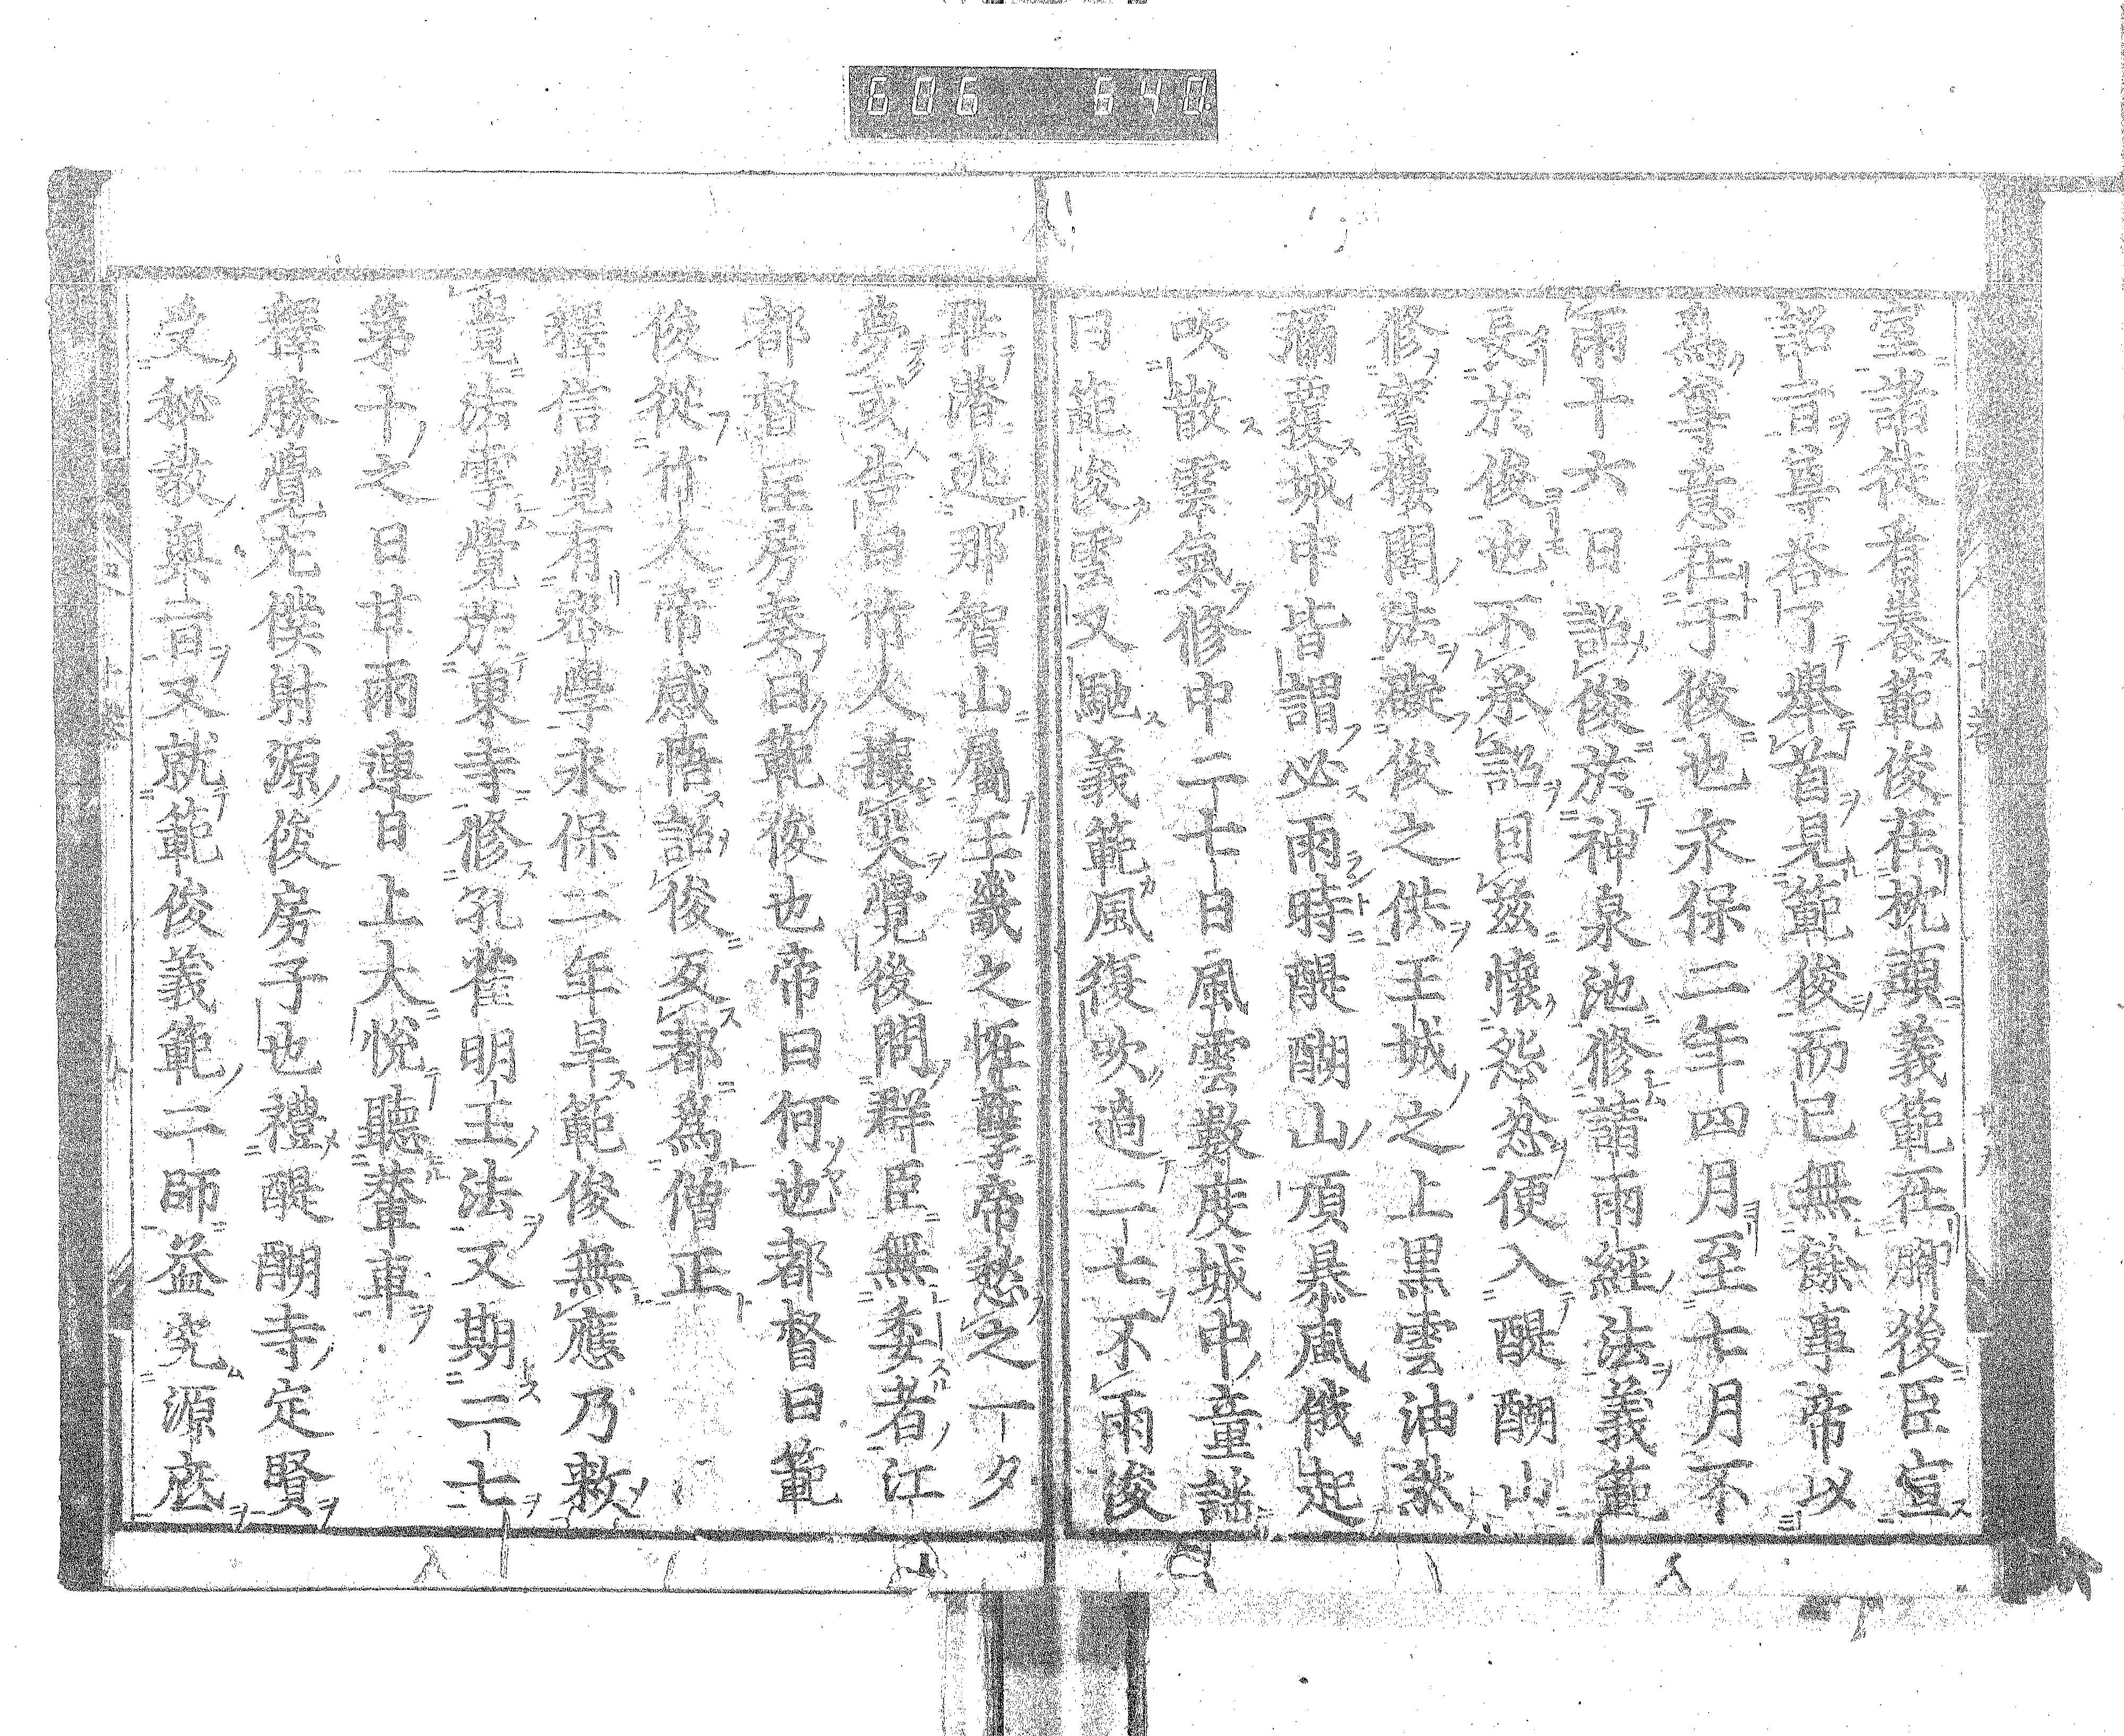 606 640
室諸徒看養範俊在枕頭義範在脚後臣宣
詔言尊答了舉首見範俊而已無餘事帝以
爲尊意在于俊也永保二年四月至七月不
雨十六日詔俊於神泉池修請雨經法義範
長於俊也不承詔因玆懷怨忿便入醍醐山
修寳樓閣法礙俊之供王城之上黒雲油然
彌覆城中皆謂必雨時醍醐山頂暴風俄起
吹散雲氣修中二七日風雲數度城中童謡
曰範俊雲又馳義範風復吹適二七不雨俊
畢潜逃那智山屬王畿之恠孽帝愁之一夕
夢或告曰竹人攘突覺後問群臣無委者江
都督匡房奏曰範俊也帝曰何也都督曰範
俊從竹人帝感悟詔俊反都爲僧正
釋信覺有密學永保二年旱範俊無應乃敕
覺法雩覺於東寺修孔雀明王法又期二七
第十之日甘雨連日上大悅聽輦車
釋勝覺左僕射源俊房子也禮醍醐寺定賢
受秘敎與言又就範俊義範二師益究源底